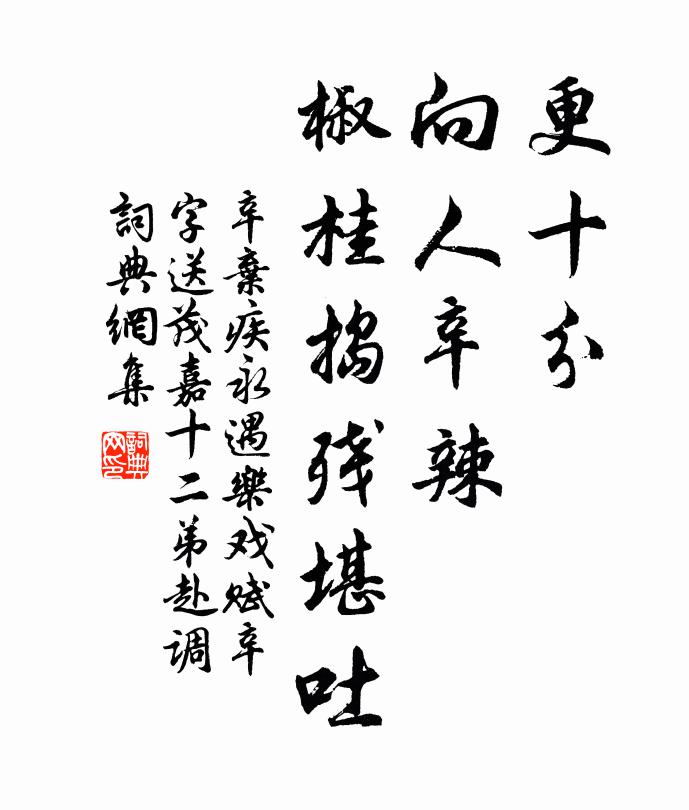 更十分
向人辛辣
椒桂捣残堪吐
辛棄疾永遇樂戏赋辛
字送茂嘉十二弟赴调
詞典網集
詞典
网印